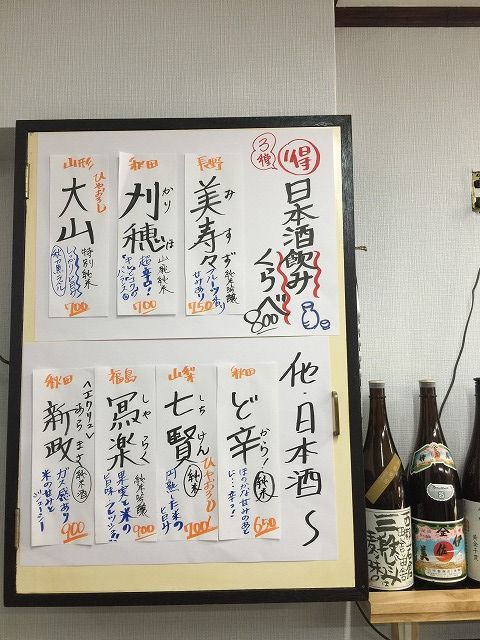 得
3種
日本酒飲み
くらべ
800
長野
美寿々
みすず
純米吟醸
フルーツ香り
甘みあり
750
秋田
刈穂
かりほ
山廃純米
超辛口!
700
山形
ひやおろし
大山
特別純米
700
他・日本酒〜
秋田
ど辛
から!
純米
ほのかな甘みのあと
ド…辛っ!
650
山梨
七賢
しちけん
ひやおろし
純米
円熟した米の
旨味
700
福島
冩楽
しゃらく
純米吟醸
果実と米の
旨味
900
秋田
新政
あらまさ
〈エクリュ〉
純米酒
ガス感あり
米の甘みと
ジューシー
900
三軒
伊佐美